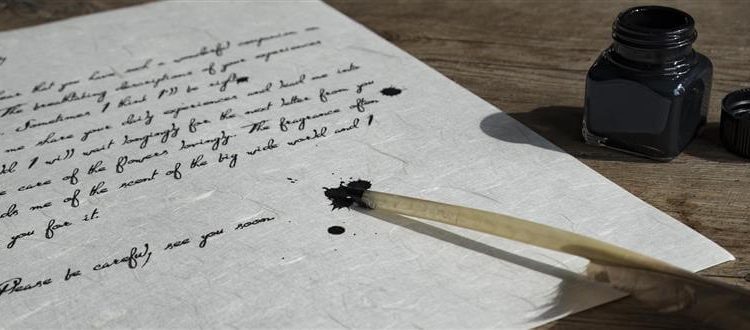 that you have and a wonderful companion
The breathtaking descriptions of your experiences
Sometimes I think I'll be right
me share your daily experiences and lead me into
I will wait longingly for the next letter from you
care of the flowers lovingly. The fragrance often
me of the scent of the big wide world and I
you for it.
Please be careful, see you soon